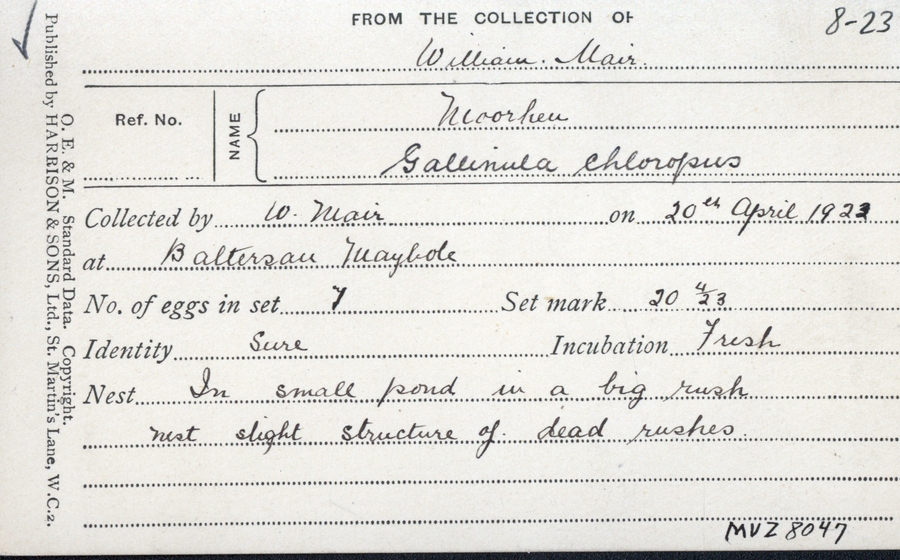 FROM THE COLLECTION OF
8-23
William. Mair.
Ref. No.
NAME
Moorhen
Gallinula chloropus
Collected by W. Mair on 20th April 1923
at Baltersan Maybole
No. of eggs in set 7 Set mark 20 4/23
Identity Sure Incubation Fresh
Nest In small pond in a big rush
nest slight structure of dead rushes.
MVZ 8047
O. E. & M. Standard Data. Copyright.
Published by HARRISON & SONS, Ltd., St. Martin's Lane, W.C.2.